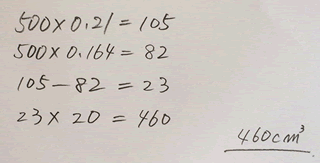 500×0.21=105
500×0.164=82
105-82=23
23×20=460
460cm³